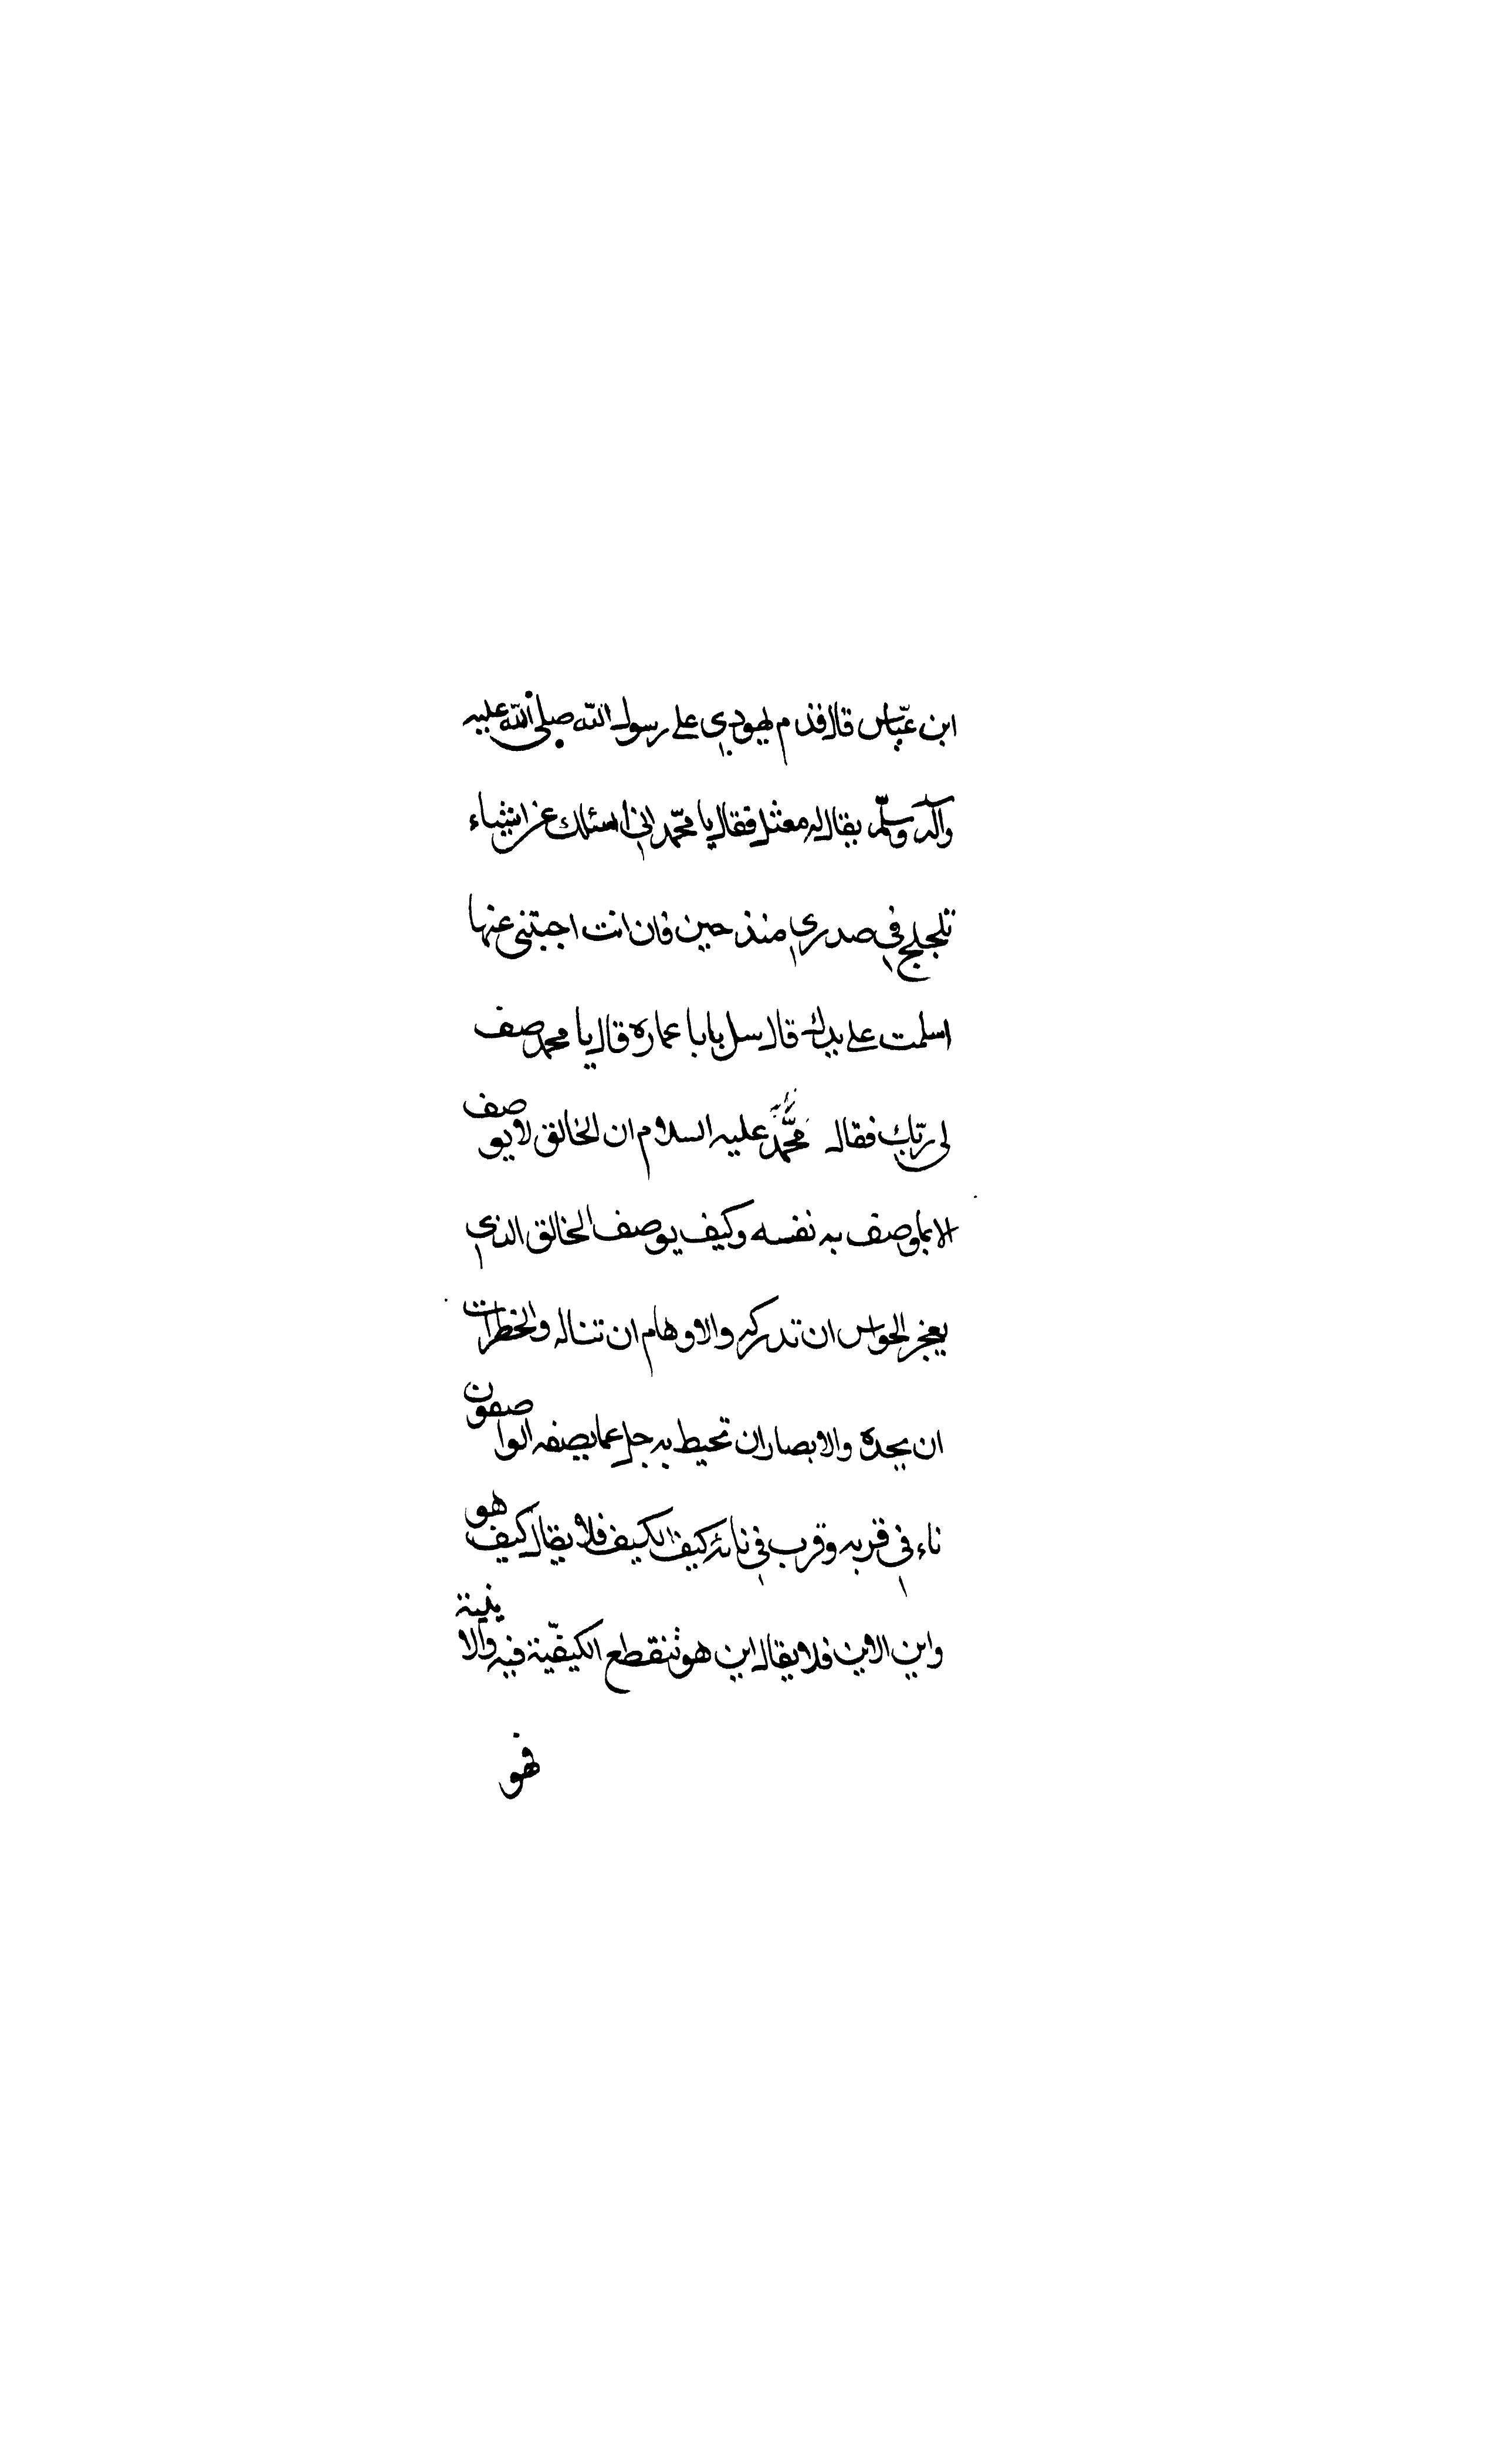 ابن عبّاس قال قدم يهودي على رسول الله صلى الله عليه
وآله وسلم يقال له معثل فقال يا محمّد اني اسئلك عن اشياء
تلجلج في صدري منذ حين فان انت اجبتني عنها
اسلمت على يدك قال سل يا با عماره قال يا محمد صف
لي ربّك فقال محمّد عليه السلام ان الخالق لا يوصف
الا بما وصف به نفسه وكيف يوصف الخالق الذي
يعجز الحواس ان تدركه والاوهام ان تناله والخطرات
ان يحده والابصار ان تحيط به جل عما يصفه الواصفون
ناء في قربه وقرب في نائه كيف الكيف فلا يقال كيف هو
واين الاين فلا يقال اين هو تنقطع الكيفيّة فيه والاينية
فهو